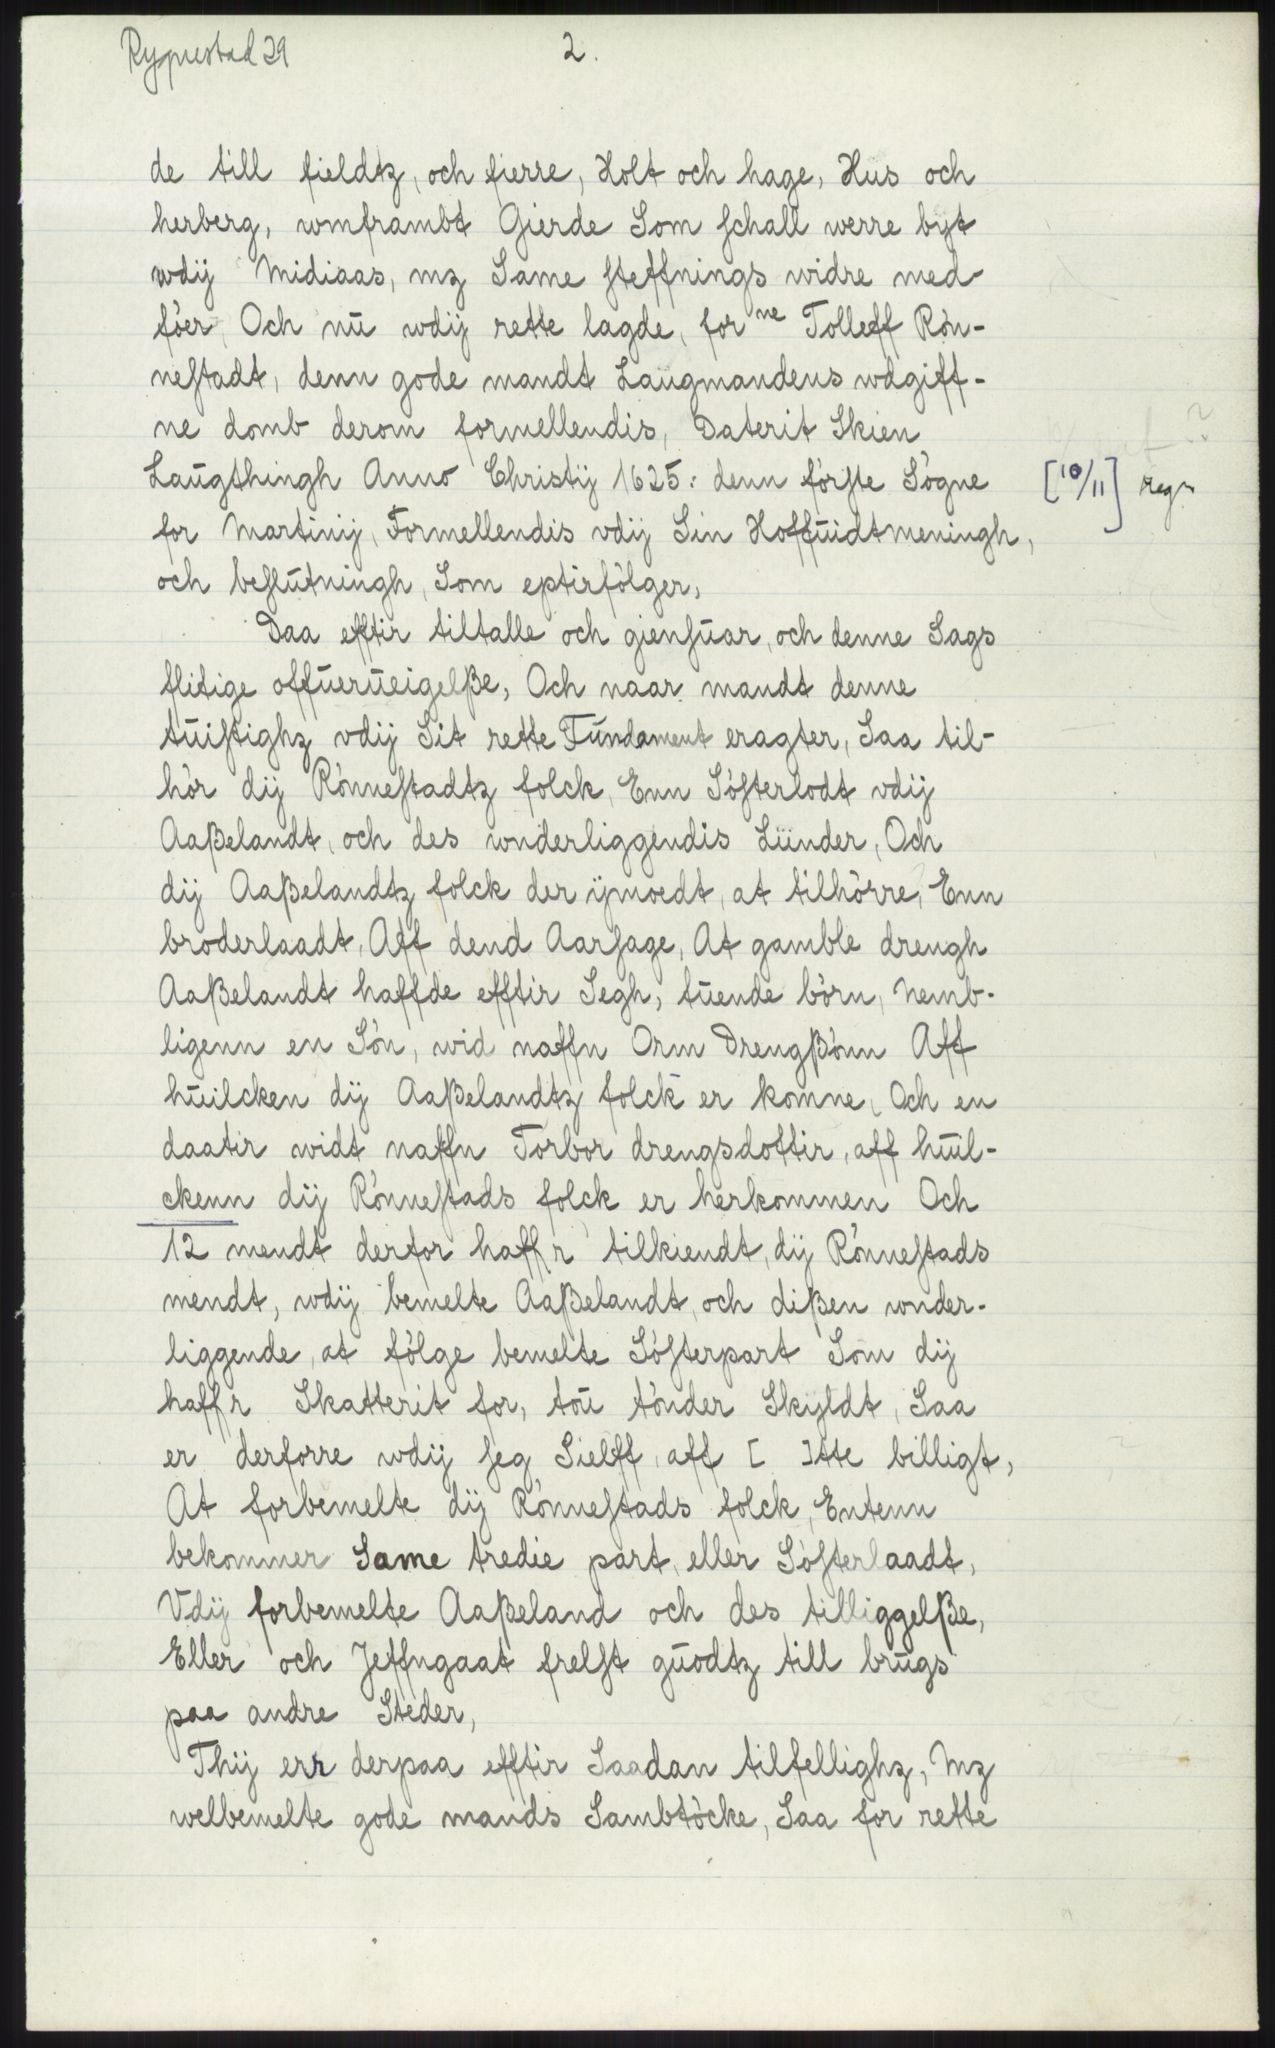 Rypnestad 29
2.
de till fieldtz, och fierre, Holt och hage, Hus och
herberg, wmframbt Gierde Som schall werre byt
wdij Midiaas, mz Same steffnings widre med-
föer, Och nū wdij rette lagde, for ne Tolleff Rön-
nestadt, denn gode mandt Laūgmandens wdgiff-
ne domb derom formellendis, Daterit Skien
Laūgthingh Anno Christij 1625: denn förste Sögne
[10/11] regn
for Martinij, Formellendis vdij Sin Hoffūidtmeningh,
och beslūtningh, Som eptirfölger,
Daa efftir tiltalle och giensūar, och denne Sags
flitige offuerūeigelße, Och naar mandt denne
tūistighz vdij Sit rette Fūndament eragter, Saa til-
hör dij Rönnestadtz folck, Enn Sösterlodt vdij
Aaßelandt, och des wnderliggendis Lūnder, Och
dij Aaßelandtz folck der ijmoedt, at tilhörre, Enn
broderlaadt, Aff dend Aarsage, At gamble drengh
Aaßelandt haffde efftir Segh, tūende börn, Nemb-
ligenn en Sön, wid naffn Orm Drengßönn Aff
hūilcken dij Aaßelandtz folck er komne, Och en
daatir widt naffn Torbor drengsdottir, aff hūil-
ckenn dij Rönnestads folck er herkommen Och
12 mendt derfor haffr tilkiendt, dij Rönnestads
mendt, wdij bemelte Aaßelandt, och dißen wnder-
liggende, at fölge bemelte Sösterpart Som dij
haffr Skatterit for, toū tönder Skyldt, Saa
er derforre wdij seg Sielff, aff [ ]tte billigt,
At forbemelte dij Rönnestads folck, Entenn
bekommer Same tredie part, eller Sösterlaadt,
Vdij forbemelte Aaßeland och des tilliggelße,
Eller och Jeffngaat frelst gūodtz till brūgs
paa andre Steder,
Thij err derpaa efftir Saadan tilfellighz, Mz
welbemelte gode mands Sambtöcke, Saa for rette